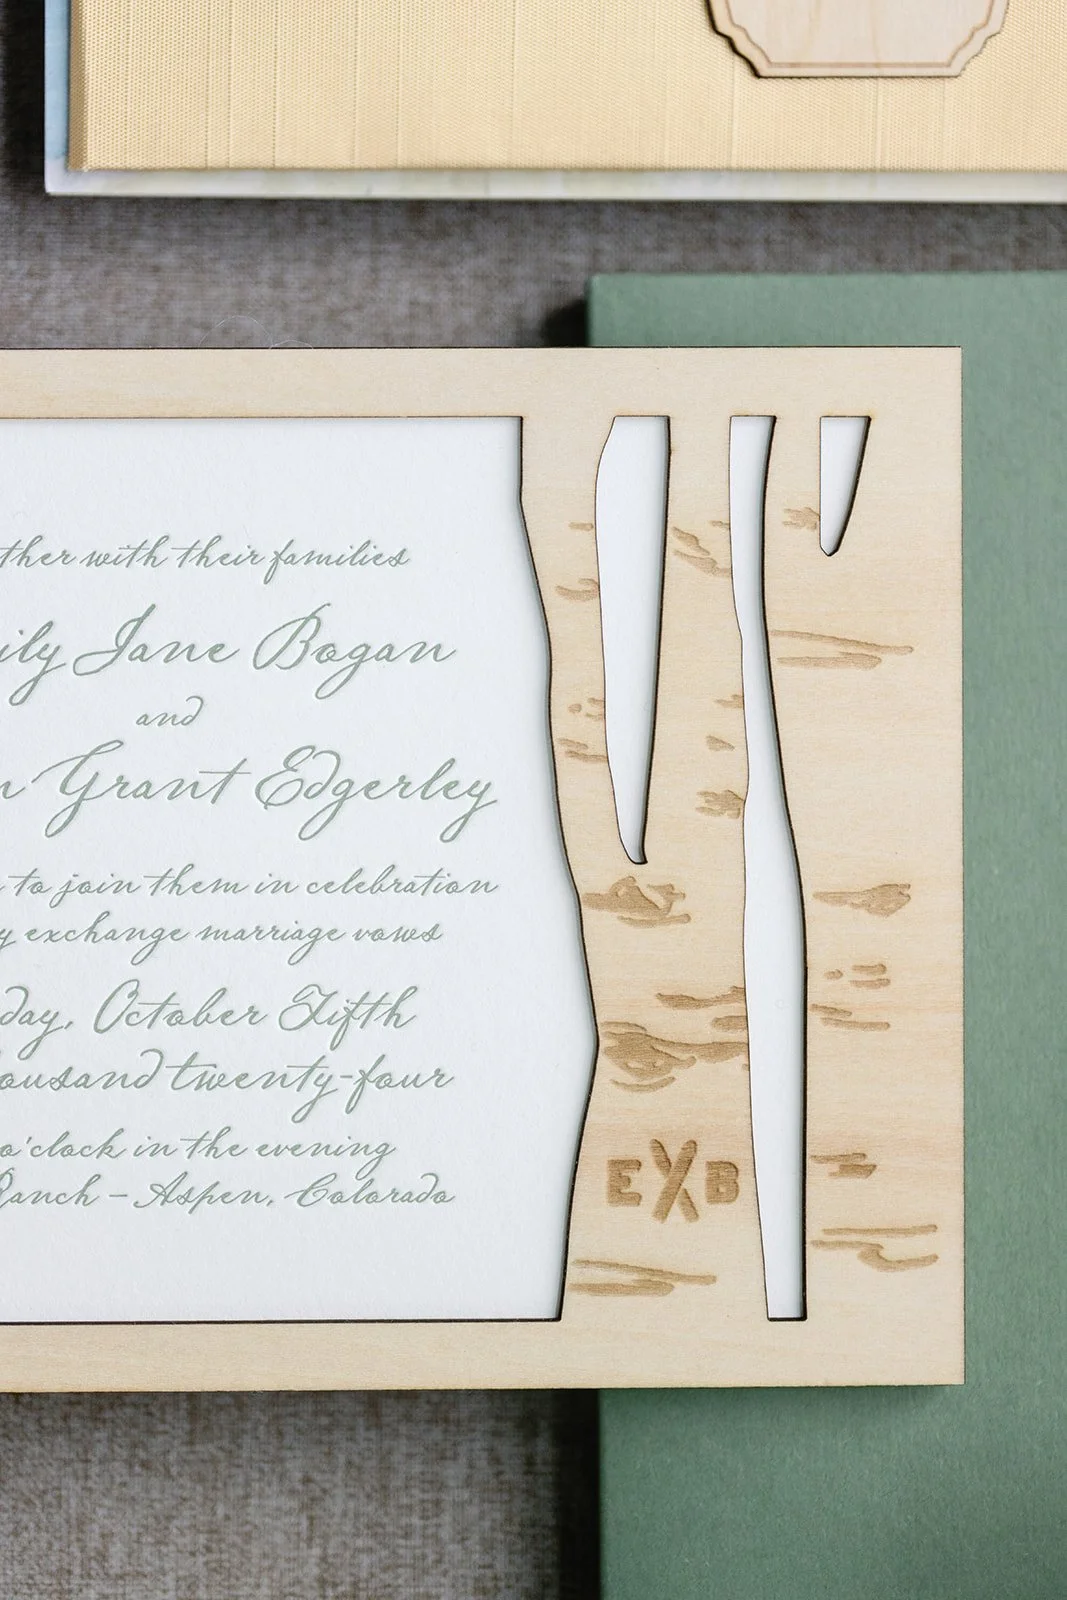 ther with their families
ily Jane Bogan
and
n Grant Edgerley
to join them in celebration
y exchange marriage vows
day, October Fifth
ousand twenty-four
o'clock in the evening
Ranch – Aspen, Colorado
E X B